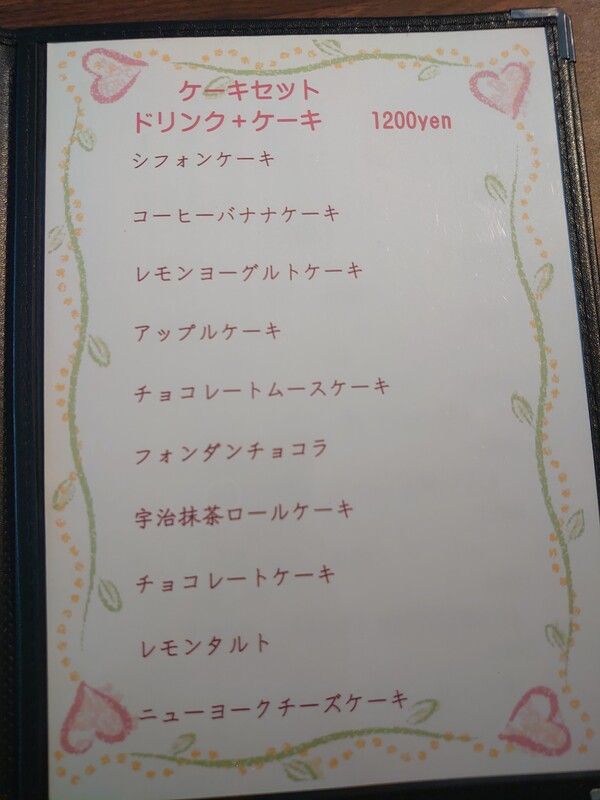 ケーキセット
ドリンク＋ケーキ 1200yen
シフォンケーキ
コーヒーバナナケーキ
レモンヨーグルトケーキ
アップルケーキ
チョコレートムースケーキ
フォンダンチョコラ
宇治抹茶ロールケーキ
チョコレートケーキ
レモンタルト
ニューヨークチーズケーキ